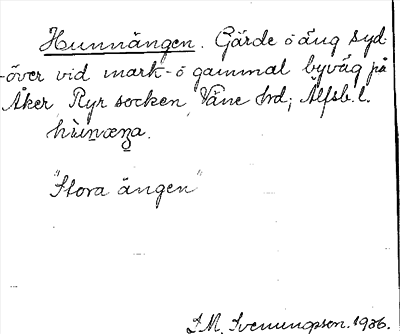 Hunnängen. Gärde o äng syd-
-över vid mark- o gammal byväg på
Åker, Ryr socken, Väne hrd; Älfsb. l.
"Stora ängen"
S.M. Svenungsson. 1926.